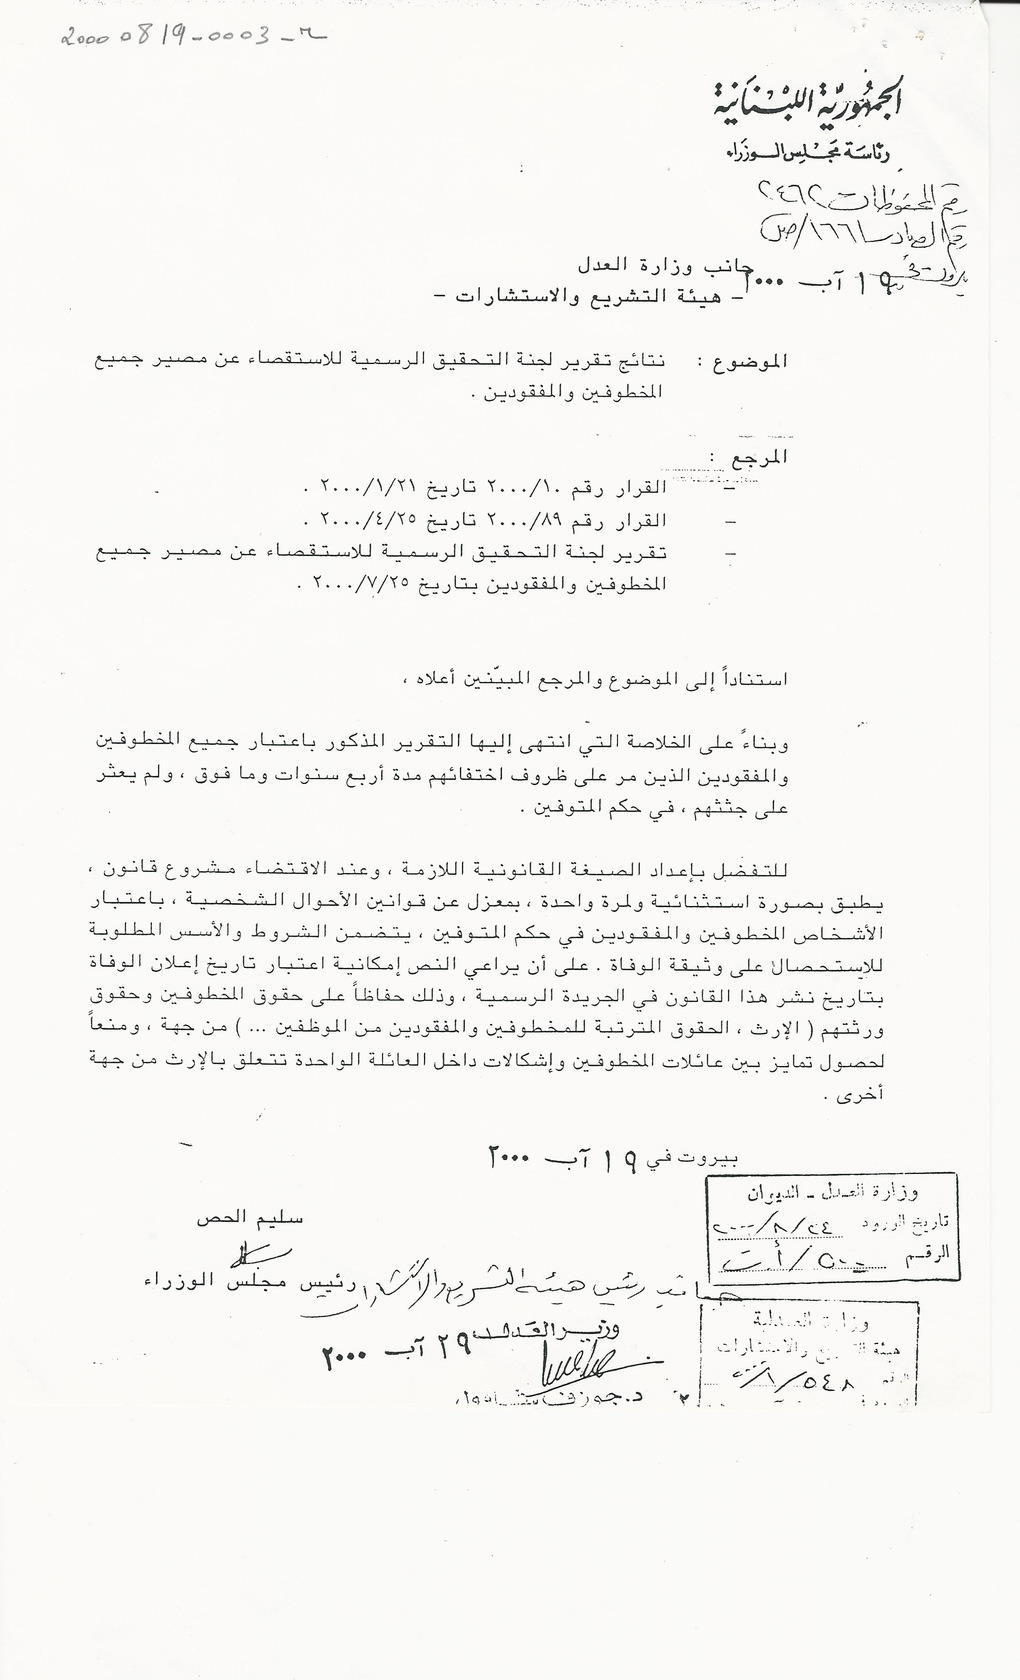 20000819-0003-م
الجمهوريّة اللبنانية
رئاسة مجلس الوزراء
رقم المحفوظات ٢٤٦٢
رقم الصادر ١٦٦١/ص
بيروت في ١٩ آب ٢٠٠٠
جانب وزارة العدل
– هيئة التشريع والاستشارات –
الموضوع : نتائج تقرير لجنة التحقيق الرسمية للاستقصاء عن مصير جميع
المخطوفين والمفقودين .
المرجع :
– القرار رقم ٢٠٠٠/١٠ تاريخ ٢٠٠٠/١/٢١ .
– القرار رقم ٢٠٠٠/٨٩ تاريخ ٢٠٠٠/٤/٢٥ .
– تقرير لجنة التحقيق الرسمية للاستقصاء عن مصير جميع
المخطوفين والمفقودين بتاريخ ٢٠٠٠/٧/٢٥ .
استناداً إلى الموضوع والمرجع المبيّنين أعلاه ،
وبناءً على الخلاصة التي انتهى إليها التقرير المذكور باعتبار جميع المخطوفين
والمفقودين الذين مر على ظروف اختفائهم مدة أربع سنوات وما فوق ، ولم يعثر
على جثثهم ، في حكم المتوفين .
للتفضل بإعداد الصيغة القانونية اللازمة ، وعند الاقتضاء مشروع قانون ،
يطبق بصورة استثنائية ولمرة واحدة ، بمعزل عن قوانين الأحوال الشخصية ، باعتبار
الأشخاص المخطوفين والمفقودين في حكم المتوفين ، يتضمن الشروط والأسس المطلوبة
للإستحصال على وثيقة الوفاة . على أن يراعي النص إمكانية اعتبار تاريخ إعلان الوفاة
بتاريخ نشر هذا القانون في الجريدة الرسمية ، وذلك حفاظاً على حقوق المخطوفين وحقوق
ورثتهم ( الإرث ، الحقوق المترتبة للمخطوفين والمفقودين من الموظفين ... ) من جهة ، ومنعاً
لحصول تمايز بين عائلات المخطوفين وإشكالات داخل العائلة الواحدة تتعلق بالإرث من جهة
أخرى .
بيروت في ١٩ آب ٢٠٠٠
وزارة العدل - الديوان
تاريخ الورود ٢٠٠٠/٨/٢٤
الرقم ٥٠٠/أ.ت
سليم الحص
رئيس مجلس الوزراء
جانب رئيس هيئة التشريع والاستشارات
وزير العدل
٢٩ آب ٢٠٠٠
د. جوزف شاوول
وزارة العدلية
هيئة التشريع والاستشارات
الرقم ٥٤٨